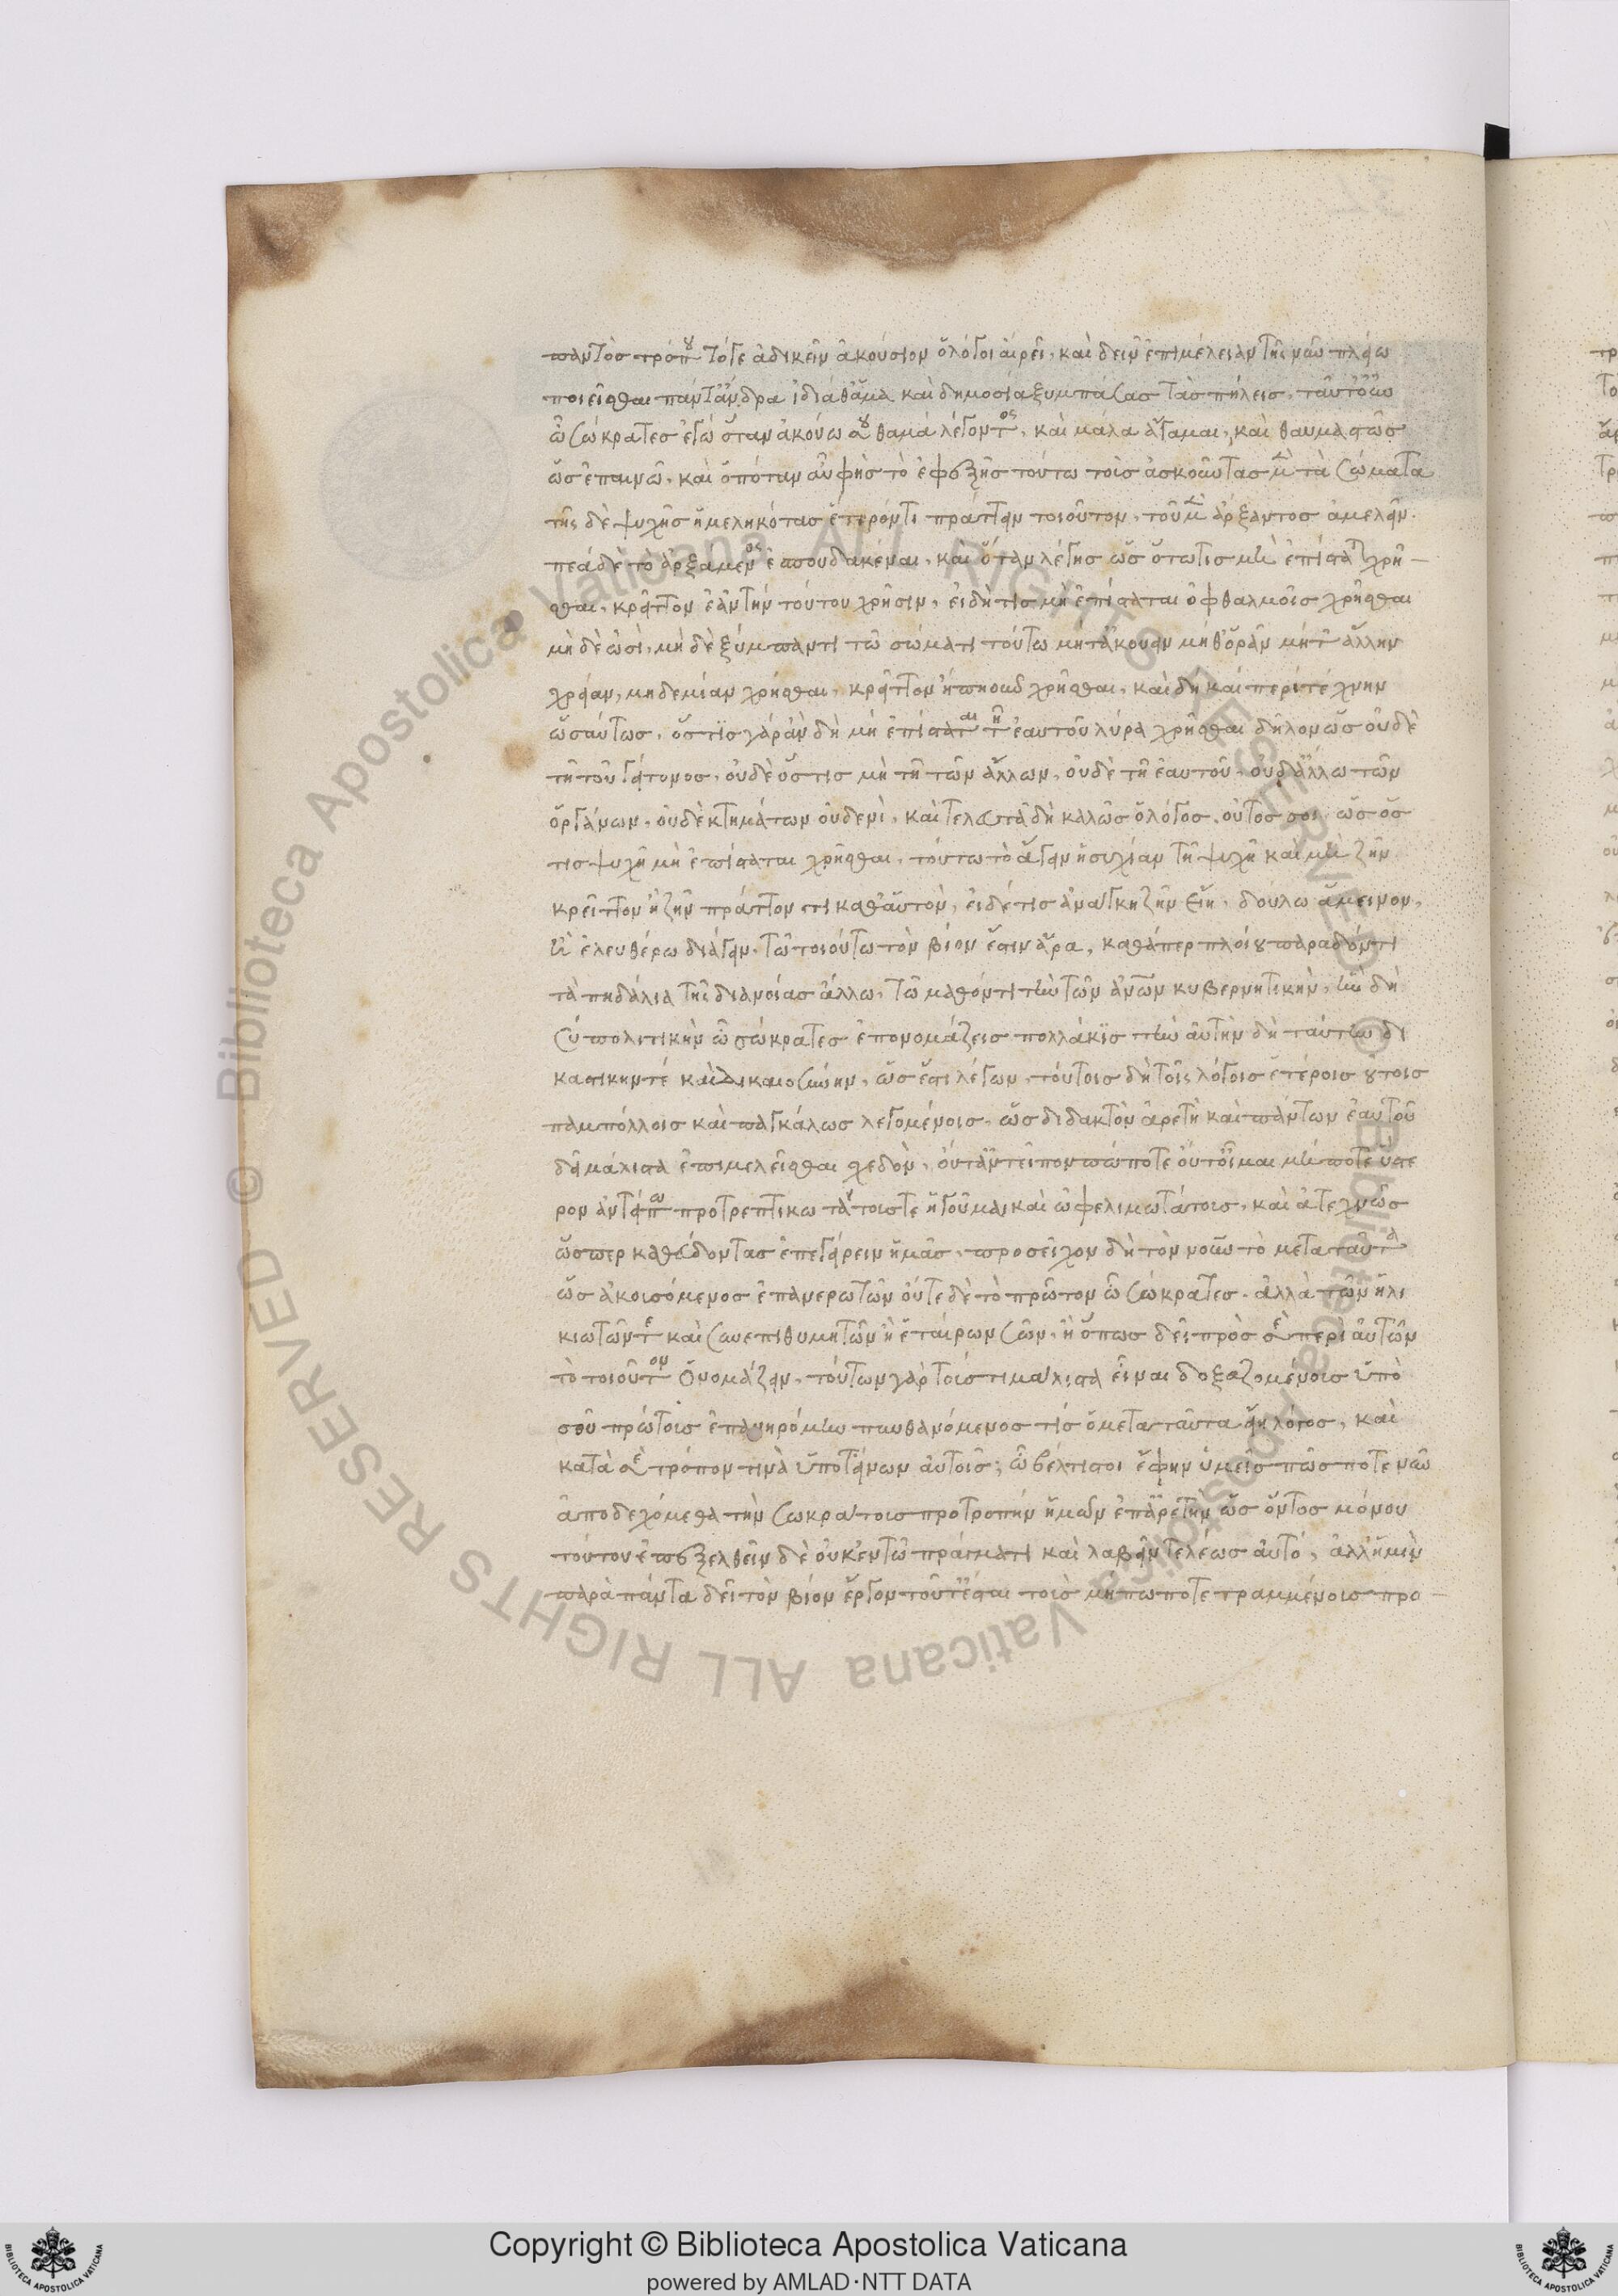 παντὸς τρόπου τόγε ἀδικεῖν ἀκούσιον ὁ λόγος αἱρεῖ, καὶ δεῖν ἐπιμέλειαν τῆς νῦν πλείω
ποιεῖσθαι πάντ' ἄνδρα ἰδίᾳ θ' ἅμα καὶ δημοσίᾳ ξυμπάσας τὰς πόλεις, ταῦτ' οὖν
ὦ Σώκρατες ἐγὼ ὅταν ἀκούω σου θαμὰ λέγοντος, καὶ μάλα ἄγαμαι, καὶ θαυμαστῶς
ὡς ἐπαινῶ, καὶ ὁπόταν αὖ φῇς τὸ ἐφεξῆς τούτω τοὺς ἀσκοῦντας μὲν τὰ σώματα
τῆς δὲ ψυχῆς ἠμεληκότας ἕτερόν τι πράττειν τοιοῦτον, τοῦ μὲν ἄρξαντος ἀμελεῖν
πε δὲ τὸ ἀρξόμενος ἐσπουδακέναι, καὶ ὅταν λέγῃς ὡς ὅτω τις μὴ ἐπίσταται χρῆ
σθαι, κρεῖττον ἐᾶν τὴν τούτου χρῆσιν, εἰ δή τις μὴ ἐπίσταται ὀφθαλμοῖς χρῆσθαι
μὴ δὲ ὠσὶ, μὴ δὲ ξύμπαντι τῶ σώματι τούτω μήτ' ἀκούειν μήθ' ὁρᾶν μήτ' ἄλλην
χρείαν, μηδεμίαν χρῆσθαι, κρεῖττον ἢ ὁπηοῦν χρῆσθαι, καὶ δὴ καὶ περὶ τέχνην
ὡσαύτως, ὅστις γὰρ ἂν δὴ μὴ ἐπίσταται τῇ ἑαυτοῦ λύρα χρῆσθαι δῆλον ὡς οὐδὲ
τῇ τοῦ γείτονος, οὐδὲ ὅστις μὴ τῇ τῶν ἄλλων, οὐδὲ τῇ ἑαυτοῦ, οὐδ' ἄλλω τῶν
ὀργάνων, οὐδὲ κτημάτων οὐδενὶ, καὶ τελευτᾷ δὴ καλῶς ὁ λόγος οὗτός σοι, ὡς ὅς
τις ψυχῇ μὴ ἐπίσταται χρῆσθαι, τούτω τὸ ἄγειν ἡσυχίαν τῇ ψυχῇ καὶ μὴ ζῆν
κρεῖττον ἢ ζῆν πράττοντι καθ' αὑτὸν, εἰ δέ τις ἀνάγκη ζῆν εἴη, δούλω ἄμεινον,
ἢ ἐλευθέρω διάγειν τῶ τοιούτω τὸν βίον ἐστὶν ἄρα, καθάπερ πλοίου παραδόντι
τὰ πηδάλια τῆς διανοίας ἄλλω, τῶ μαθόντι τὴν τῶν ἀνθρώπων κυβερνητικὴν, ἣν δὴ
σὺ πολιτικὴν ὦ Σώκρατες ἐπονομάζεις πολλάκις τὴν αὐτὴν δὴ ταύτην δι
καστικήν τε καὶ δικαιοσύνην, ὡς ἔστι λέγων, τούτοις δὴ τοῖς λόγοις ἑτέροις τοιούτοις
παμπόλλοις καὶ παγκάλως λεγομένοις, ὡς διδακτὸν ἀρετὴ καὶ πάντων ἑαυτοῦ
δεῖ μάλιστα ἐπιμελεῖσθαι σχεδὸν, οὔτ' ἀντεῖπον πώποτε οὔτ' οἶμαι μήποτε ὕστε
ρον ἀντείπω προτρεπτικωτάτους τε ἡγοῦμαι καὶ ὠφελιμωτάτοις, καὶ ἀτεχνῶς
ὥσπερ καθεύδοντας ἐπεγείρειν ἡμᾶς, προσεῖχον δὴ τὸν νοῦν τὸ μετὰ ταῦτα
ὡς ἀκουσόμενος ἐπανερωτῶν οὔτε δὲ τὸ πρῶτον ὦ Σώκρατες, ἀλλὰ τῶν ἡλι
κιωτῶν τε καὶ συνεπιθυμητῶν ἢ ἑταίρων σῶν, ἢ ὅπως δεῖ πρὸς σὲ περὶ αὐτῶν
τὸ τοιοῦτον ὀνομάζειν, τούτων γὰρ τούς τι μάλιστα εἶναι δοξαζομένοις ὑπὸ
σοῦ πρώτοις ἐπανηρόμην πυνθανόμενος τίς ὁ μετὰ ταῦτα εἴη λόγος, καὶ
κατὰ σὲ τρόπον τινὰ ὑποτείνων αὐτοῖς; ὦ βέλτιστοι ἔφην ὑμεῖς πῶς ποτε νῦν
ἀποδεχόμεθα τὴν Σωκράτους προτροπὴν ἡμῶν ἐπ' ἀρετὴν ὡς ὄντος μόνου
τούτου ἐπεξελθεῖν δὲ οὐκ ἔν τῶ πράγματι καὶ λαβεῖν τελέως αὐτό, ἀλλ' ἡμῖν
παρὰ πάντα δεῖ τὸν βίον ἔργον τοῦτ' ἔσται τοὺς μήπω ποτετραμμένοις προ
Copyright © Biblioteca Apostolica Vaticana
powered by AMLAD·NTT DATA